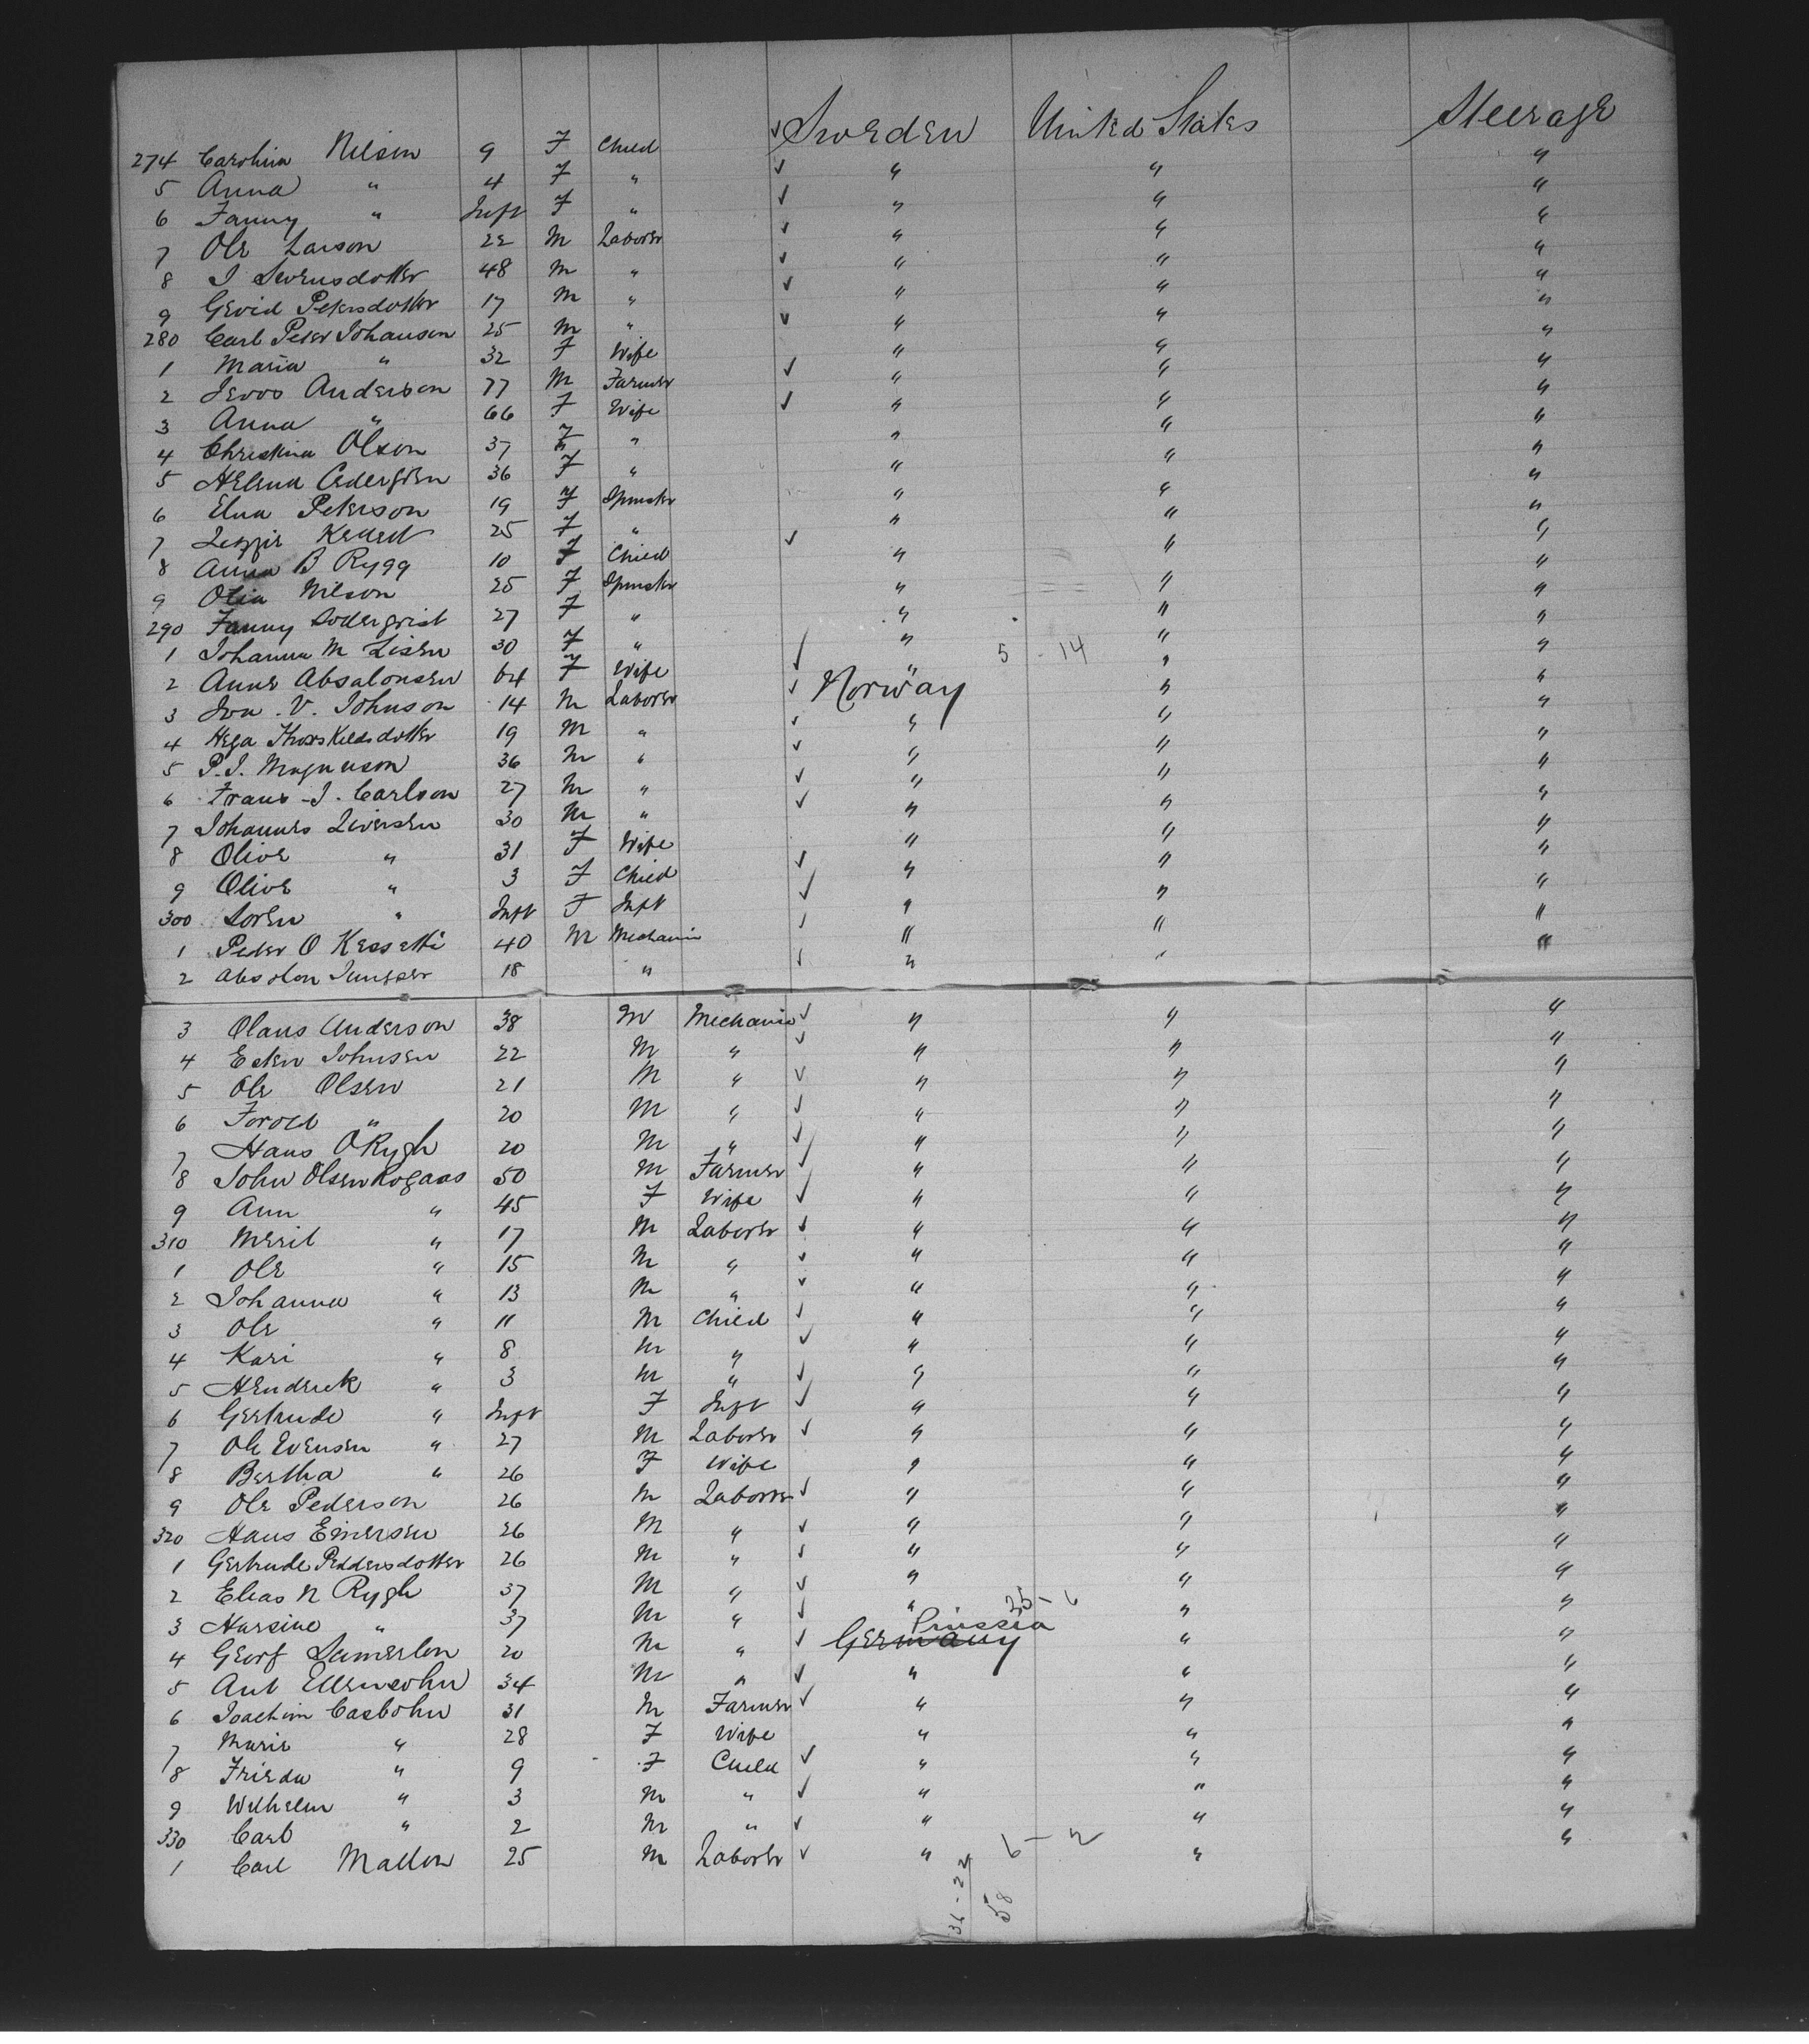 274 Carolina Nilson 9 F Child Sweden United States Steerage
5 Anna " 4 F " " " "
6 Fanny " Inft F " " " "
7 Ole Larson 22 M Laborer " " "
8 I Svensdotter 48 M " " " "
9 Petersdotter 17 M " " " "
280 Carl Peter Johanson 25 M " " " "
1 Maria " 32 F Wife " " "
2 Anderson 77 M Farmer " " "
3 Anna " 66 F Wife " " "
4 Christina Olson 37 F " " " "
5 Helena Cedergren 36 F " " " "
6 Elna Peterson 19 F Spinster " " "
7 25 F " " " "
8 Anna B Rygg 10 F Child " " "
9 Nilson 25 F Spinster " " "
290 Fanny Soderqvist 27 F " " " "
1 Johanna M 30 F " " 5 - 14 " "
2 Anne Absalonsen 64 F Wife " " "
3 V. Johnson 14 M Laborer Norway " "
4 19 M " " " "
5 P. J. Magnuson 36 M " " " "
6 Frans J. Carlson 27 M " " " "
7 Johannes Iversen 30 M " " " "
8 Olive " 31 F Wife " " "
9 Olive " 3 F Child " " "
300 Soren " Inft F Inft " " "
1 Peder O 40 M Mechanic " " "
2 Absolon 18 " "
3 Olaus Anderson 38 M Mechanic " " "
4 Johnsen 22 M " " " "
5 Ole Olsen 21 M " " " "
6 " 20 M " " " "
7 Hans O Rygh 20 M " " " "
8 John Olsen Rogaas 50 M Farmer " " "
9 Ann " 45 F Wife " " "
310 Merit " 17 M Laborer " " "
1 Ole " 15 M " " " "
2 Johanna " 13 M " " " "
3 Ole " 11 M Child " " "
4 Kari " 8 M " " " "
5 Hendrick " 3 M " " " "
6 Gertrude " Inft F Inft " " "
7 Ole Evensen " 27 M Laborer " " "
8 Bertha " 26 F Wife " " "
9 Ole Pederson 26 M Laborer " " "
320 Hans Einersen 26 M " " " "
1 Gertrude Peddersdotter 26 M " " " "
2 Elias N Rygh 37 M " " " "
3 " 37 M " " " "
4 Georg 20 M " Germany Prussia " "
5 34 M " " " "
6 Joachim Casbohn 31 M Farmer " " "
7 Marie " 28 F Wife " " "
8 Frieda " 9 F Child " " "
9 Wilhelm " 3 M " " " "
330 Carl " 2 M " " " "
1 Carl Mallon 25 M Laborer " 6 - 2 " "
36 - 22
58